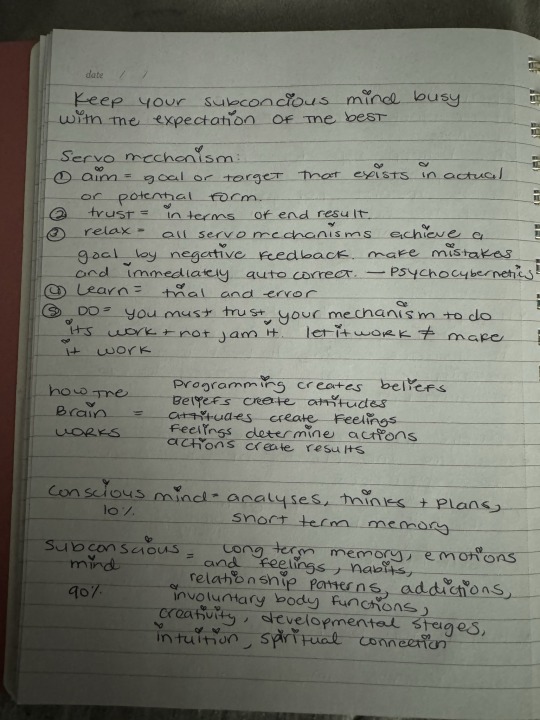 date / /
Keep your subconcious mind busy
with the expectation of the best
Servo mechanism:
① aim = goal or target that exists in actual
or potential form.
② trust = in terms of end result.
③ relax = all servo mechanisms achieve a
goal by negative feedback. make mistakes
and immediately auto correct. — Psychocybernetics
④ Learn = trial and error
⑤ DO = you must trust your mechanism to do
its work + not jam it. let it work ≠ make
it work
how the Brain works =
Programming creates beliefs
Beliefs create attitudes
attitudes create feelings
feelings determine actions
actions create results
conscious mind = analyses, thinks + plans,
10% short term memory
subconscious = long term memory, emotions
mind and feelings, habits,
relationship patterns, addictions,
90% involuntary body functions,
creativity, developmental stages,
intuition, spiritual connection